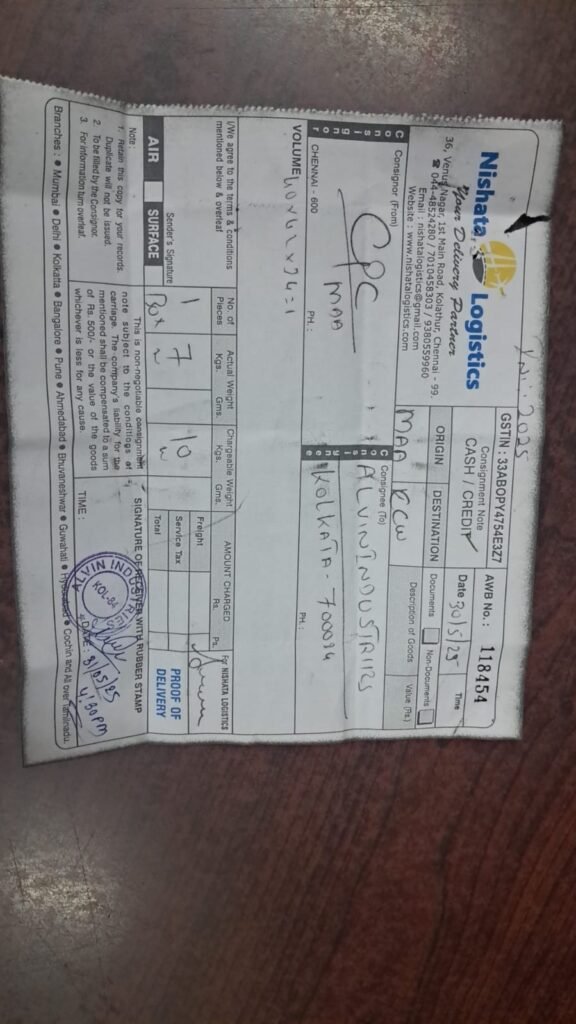 Nishata Logistics
Your Delivery Partner
36, Venus Nagar, 1st Main Road, Kolathur, Chennai - 99.
☎ 044-48524280 / 7010458303 / 9380559960
Email : nishatalogistics@gmail.com
Website : www.nishatalogistics.com
GSTIN : 33ABOPY4754E3Z7
Consignment Note
CASH / CREDIT
AWB No.: 118454
Date 30/5/25 Time
ORIGIN DESTINATION
MAA CCU
Documents Non-Documents
Description of Goods Value (Rs.)
Consignor
Consignor (From)
CPC
MAA
CHENNAI - 600 PH.:
Consignee
Consignee (To)
ALVIN INDUSTRIES
KOLKATA - 700094
PH.:
VOLUME
I/We agree to the terms & conditions
mentioned below & overleaf
Sender's Signature
No. of Pieces Actual Weight Kgs. Gms. Chargeable Weight Kgs. Gms. AMOUNT CHARGED Rs. Ps.
1 7 10
Box
Freight
Service Tax
Total
For NISHATA LOGISTICS
PROOF OF
DELIVERY
AIR SURFACE
Note:
1. Retain this copy for your records.
Duplicate will not be issued.
2. To be filled by the Consignor.
3. For information turn overleaf.
This is non-negotiable consignment
note subject to the conditions of
carriage. The company's liability for the
mentioned shall be compensated to a sum
of Rs. 500/- or the value of the goods
whichever is less for any cause.
SIGNATURE OF RECEIVER WITH RUBBER STAMP
TIME : DATE : 31/05/25
4:30 PM
KOL-94
Branches : ● Mumbai ● Delhi ● Kolkatta ● Bangalore ● Pune ● Ahmedabad ● Bhuvaneshwar ● Guwahati ● Hyderabad ● Cochin and All over Tamilnadu.